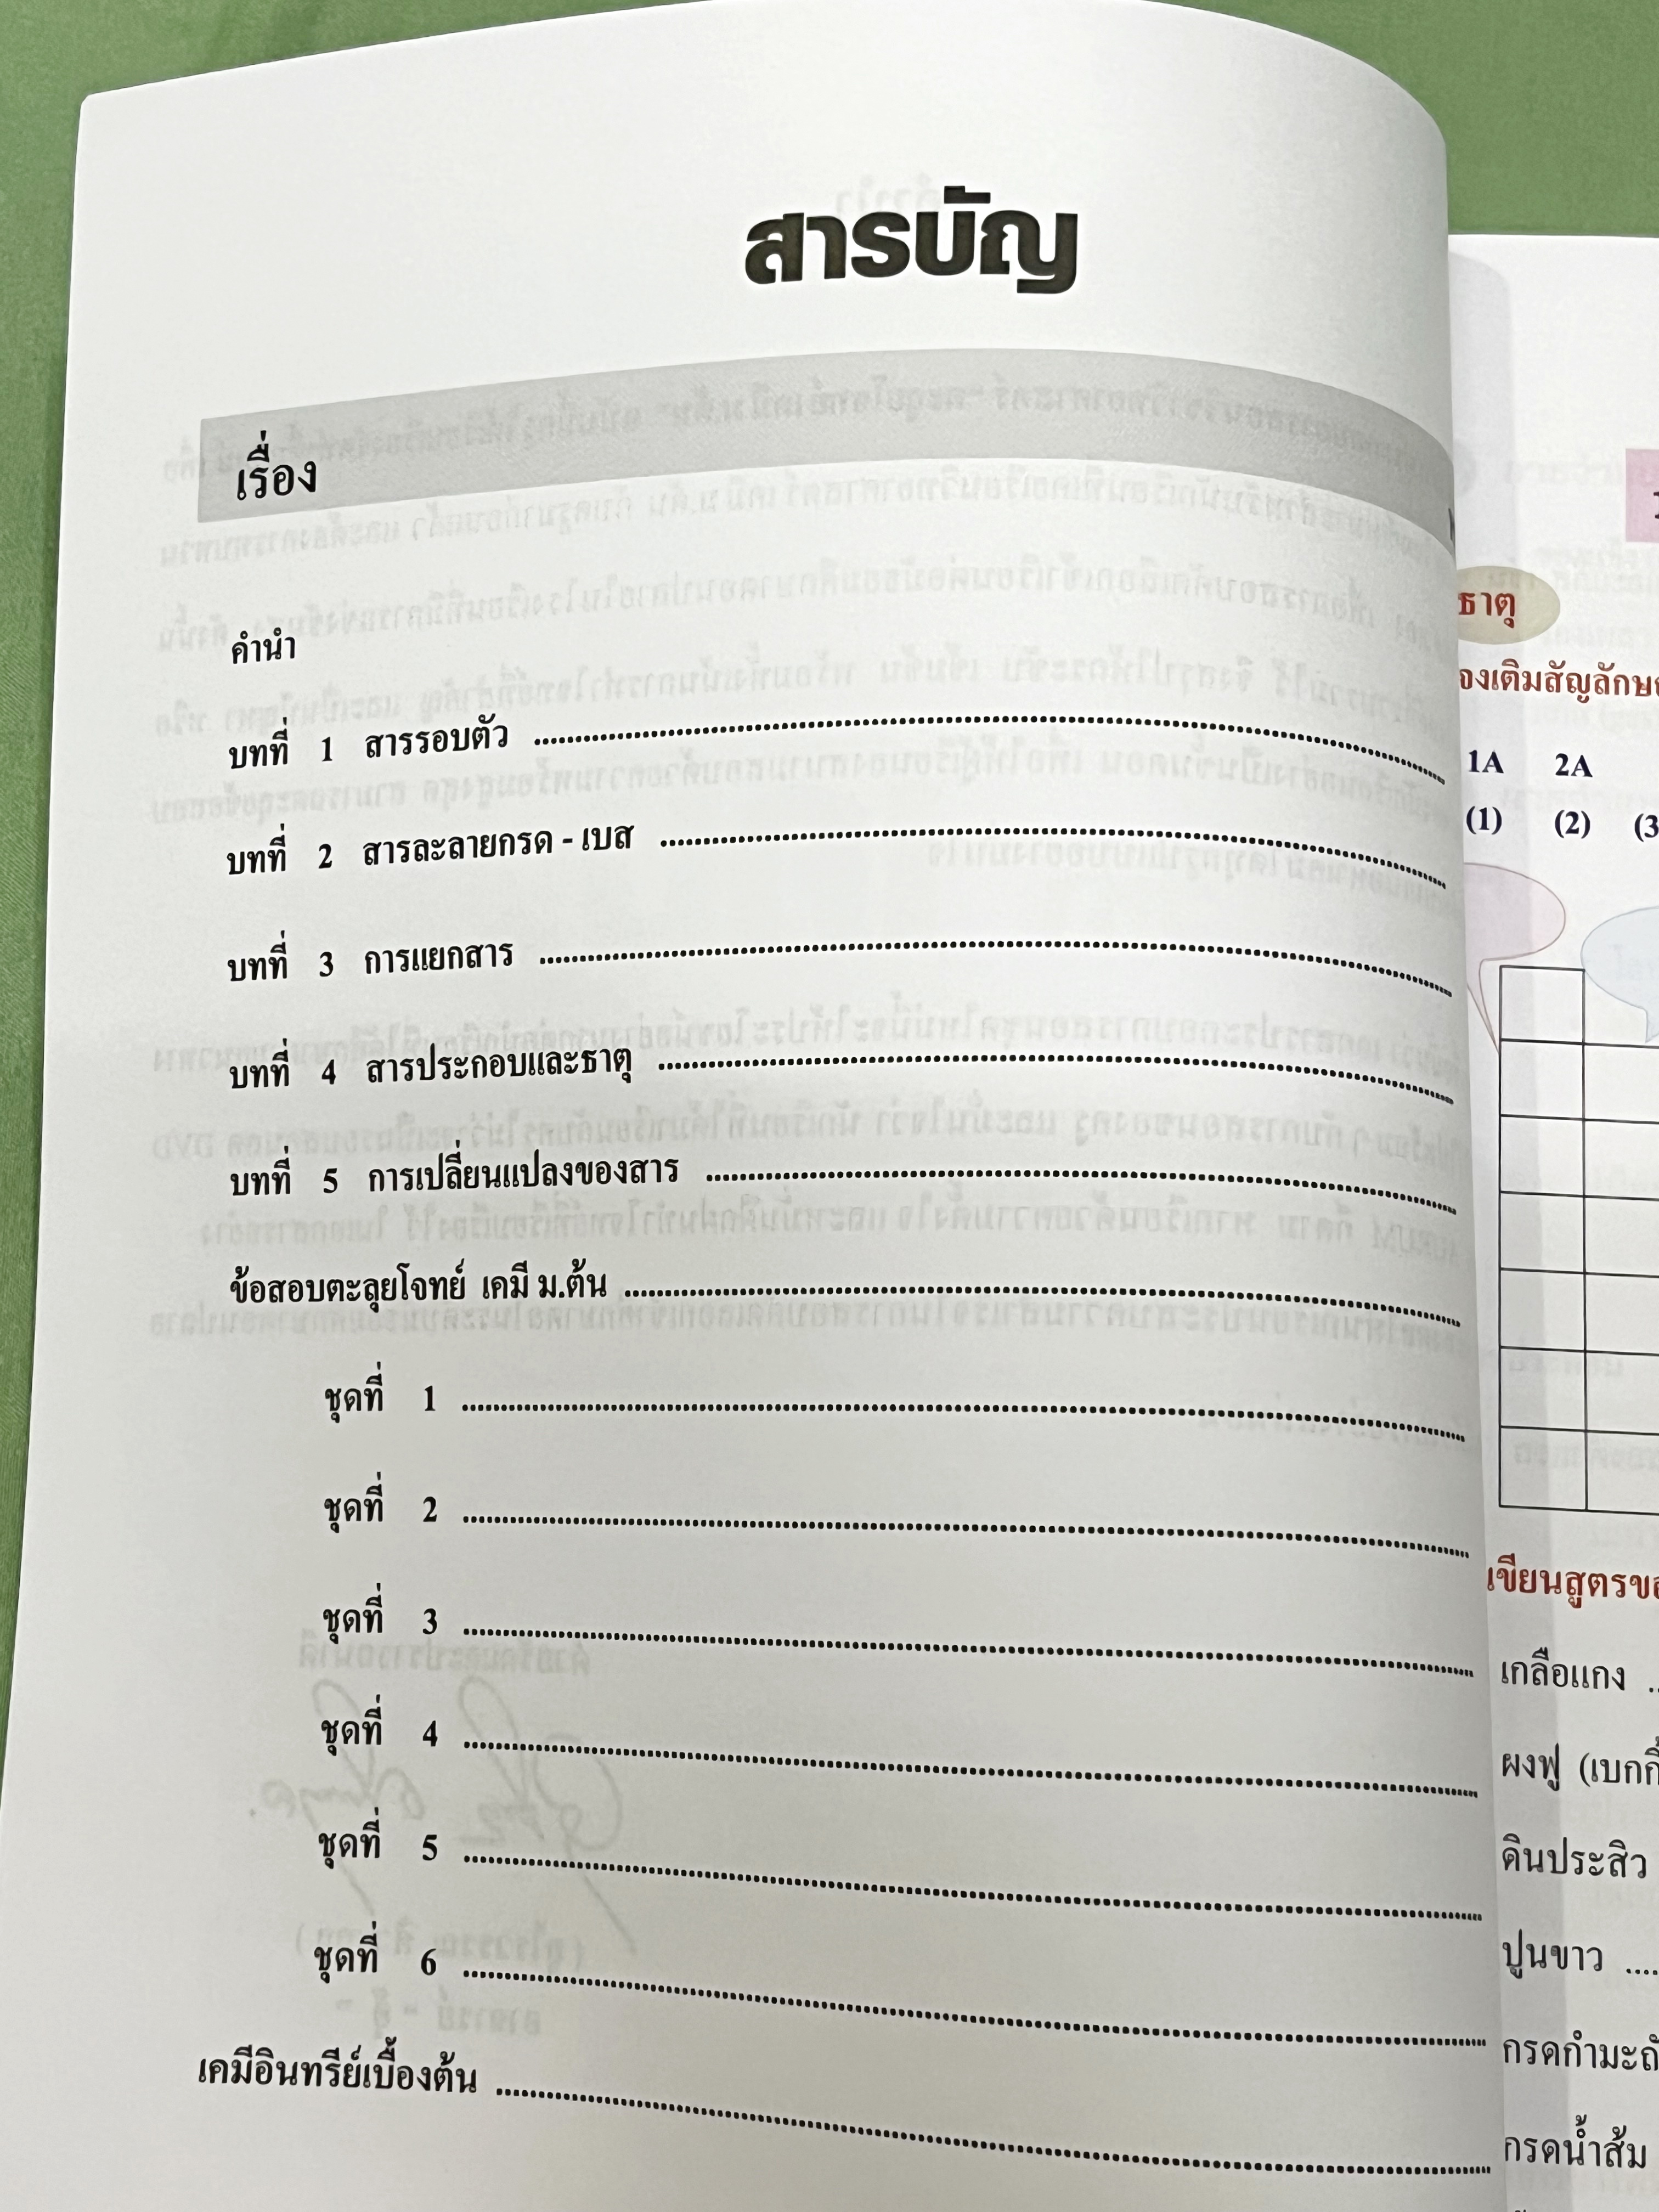 สารบัญ
เรื่อง
คำนำ
บทที่ 1 สารรอบตัว
บทที่ 2 สารละลายกรด - เบส
บทที่ 3 การแยกสาร
บทที่ 4 สารประกอบและธาตุ
บทที่ 5 การเปลี่ยนแปลงของสาร
ข้อสอบตะลุยโจทย์ เคมี ม.ต้น
ชุดที่ 1
ชุดที่ 2
ชุดที่ 3
ชุดที่ 4
ชุดที่ 5
ชุดที่ 6
เคมีอินทรีย์เบื้องต้น
ธาตุ
จงเติมสัญลักษ
1A 2A
(1) (2) (3
เขียนสูตรขอ
เกลือแกง
ผงฟู (เบกกิ้
ดินประสิว
ปูนขาว
กรดกำมะถั
กรดน้ำส้ม